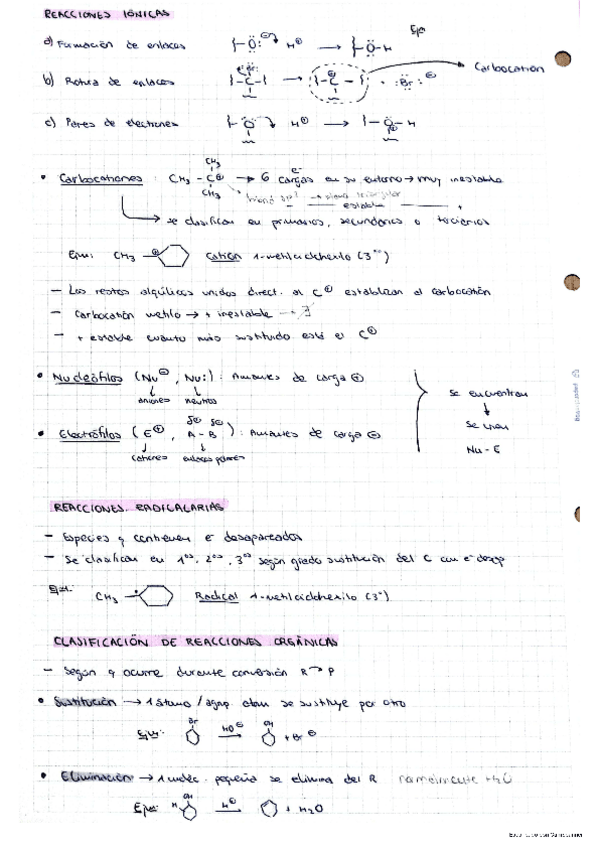 REACCIONES IÓNICAS
a) Formación de enlaces |-Ö:⊖ H⊕ → |-Ö-H
b) Rotura de enlaces :Br: |-C-| → |-C⊕-| + :Br:⊖ Carbocation
c) Pares de electrones |-Ö H⊕ → |-O⊕-H
• Carbocationes: CH3-C⊕ CH3 CH3 → 6 cargas e- en su entorno → muy inestable
híbrid sp² → plana triangular
estable +
se clasifican en primarios, secundarios o terciarios
Ejm: CH3 ⊕ Catión 1-metilciclohexilo (3º)
- Los restos alquílicos unidos direct. al C⊕ estabilizan al carbocatión
- Carbocatión metilo → + inestable → ∄
- + estable cuanto más sustituido esté el C⊕
• Nucleófilos (Nu⊖, Nu:): Amantes de carga ⊕
aniones neutros
Se encuentran
se unen
Nu-E
• Electrófilos (E⊕, δ⊕ δ⊖ A-B): Amantes de carga ⊖
cationes enlaces polares
REACCIONES RADICALARIAS
- Especies q contienen e- desapareados
- Se clasifican en 1os, 2os, 3os según grado sustitución del C con e- desap
Ejm: CH3 Radical 1-metilciclohexilo (3º)
CLASIFICACIÓN DE REACCIONES ORGÁNICAS
- Según q ocurre durante conversión R → P
• Sustitución → 1 átomo / agrup. atom se sustituye por otro
Ejm: Br HO⊖ → OH + Br⊖
• Eliminación → 1 molec. pequeña se elimina del R normalmente H2O
Ejm: H OH H⊕ → + H2O